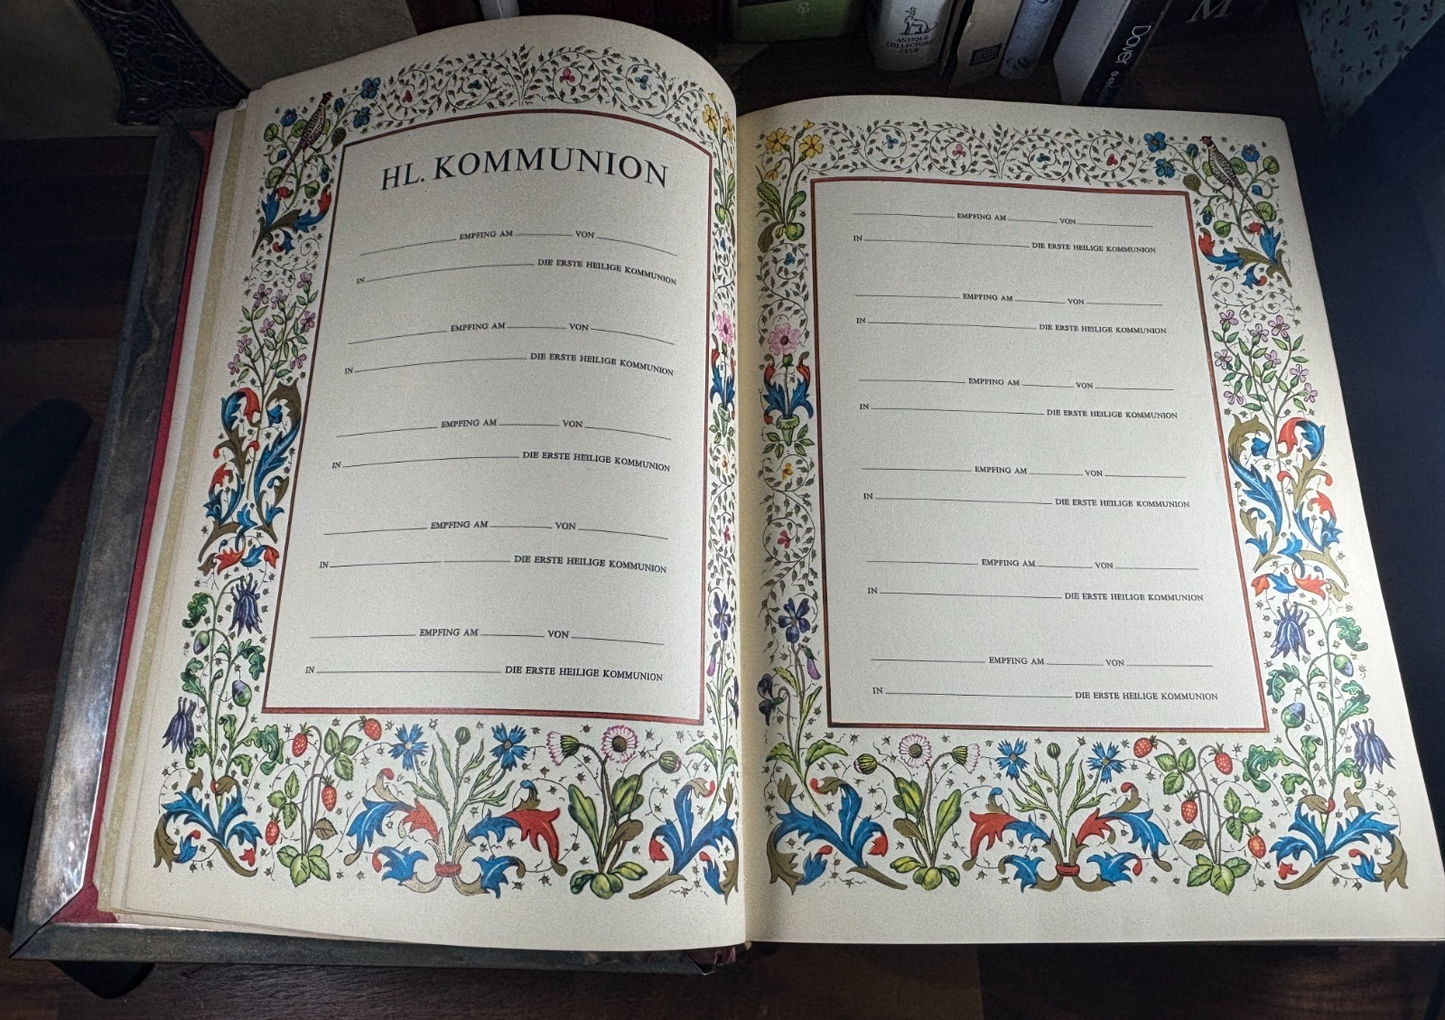 ANTIQUE
COLLECTORS'
CLUB
Dover
M
HL. KOMMUNION
EMPFING AM VON
IN DIE ERSTE HEILIGE KOMMUNION
EMPFING AM VON
IN DIE ERSTE HEILIGE KOMMUNION
EMPFING AM VON
IN DIE ERSTE HEILIGE KOMMUNION
EMPFING AM VON
IN DIE ERSTE HEILIGE KOMMUNION
EMPFING AM VON
IN DIE ERSTE HEILIGE KOMMUNION
EMPFING AM VON
IN DIE ERSTE HEILIGE KOMMUNION
EMPFING AM VON
IN DIE ERSTE HEILIGE KOMMUNION
EMPFING AM VON
IN DIE ERSTE HEILIGE KOMMUNION
EMPFING AM VON
IN DIE ERSTE HEILIGE KOMMUNION
EMPFING AM VON
IN DIE ERSTE HEILIGE KOMMUNION
EMPFING AM VON
IN DIE ERSTE HEILIGE KOMMUNION